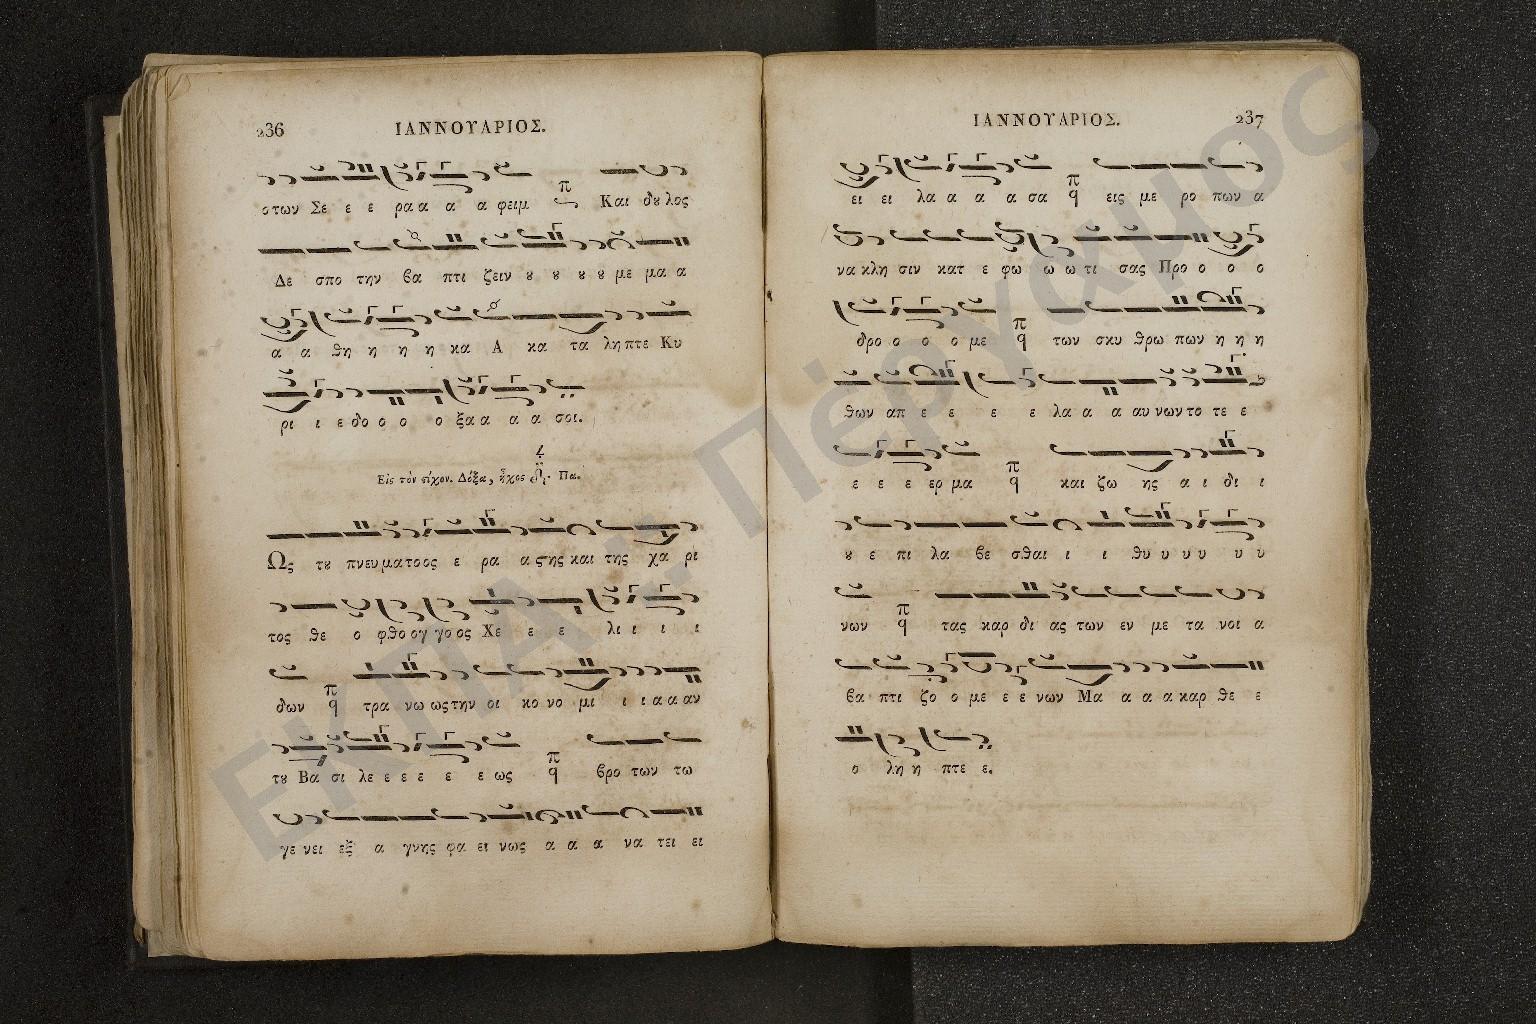 236
ΙΑΝΝΟΥΑΡΙΟΣ.
οτων Σε ε ε ραα α α α φειμ Και δȣλος
Δε σπο την βα πτι ζειν ȣ ȣ ȣ ȣ με μα α
α α θη η η η κα Α κα τα ληπτε Κυ
ρι ι ε δο ο ο ο ξα α α α σοι.
Εἰς τὸν ϛίχον. Δόξα, ἦχος Πα.
Ως τȣ πνευματοος ε ρα α ϛης και της χα ρι
τος θε ο φθο ογ γο ος Χε ε ε λι ι ι ι
δων τρα νω ως την οι κο νο μι ι ι α α αν
τȣ Βα σι λε ε ε ε ε ε ως βρο των τω
γε νει εξ α γνης φα ει νως α α α να τει ει
237
ΙΑΝΝΟΥΑΡΙΟΣ.
ει ει λα α α α σα εις με ρο πων α
να κλη σιν κατ ε φω ω ω τι σας Προ ο ο ο
δρο ο ο ο με των σκυ θρω πων η η η
θων απ ε ε ε ε λα α α αυ νων το τε ε
ε ε ε ερ μα και ζω ης α ι δι ι
ȣ ε πι λα βε σθαι ι ι θυ υ υ υ υ υ
νων τας καρ δι ας των εν με τα νοι α
βα πτι ζο ο με ε ε νων Μα α α α καρ θε ε
ο λη η πτε ε.
ΕΚΠΑ - Πέργαμος